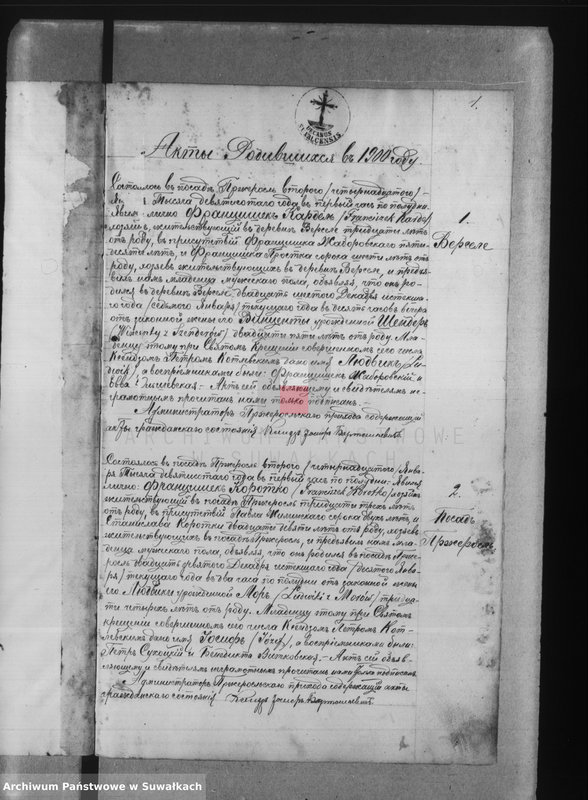 1.
DECANUS
Акты Родившихся въ 1900 году.
1.
Верселе
Состоялось въ посадѣ Пржеросль второго /четырнадцатаго/
Января Тысяча девятисотаго года въ первый часъ по полудни.
Явился лично Францишекъ Кардель /Franciszek Kardel/
хозяинъ, жительствующій въ деревнѣ Верселе тридцати лѣтъ
отъ роду, въ присутствіи Францишка Жаборовскаго пяти-
десяти лѣтъ, и Францишка Простка сорока шести лѣтъ отъ
роду, хозяевъ жительствующихъ въ деревнѣ Верселе, и предъя-
вилъ намъ младенца мужескаго пола, объявляя, что онъ ро-
дился въ деревнѣ Верселе двадцать шестого Декабря истекша-
го года /седьмого Января/ текущаго года въ десять часовъ вечера
отъ законной жены его Винценты урожденной Шендеръ
двадцати пяти лѣтъ отъ роду. Мла-
денцу этому при Святомъ Крещеніи совершенномъ его числа
Ксендзомъ Петромъ Котлевскимъ дано имя Людвикъ /Lu-
dwik/, а воспріемниками были: Францишекъ Жаборовскій и
Актъ сей объявляющему и свидѣтелямъ не-
грамотнымъ прочитанъ нами только подписанъ.
Администраторъ Пржерослскаго прихода содержащій
акты гражданскаго состоянія Ксендзъ
ARCHIWUM PAŃSTWOWE
W SUWAŁKACH
2.
Посадъ
Пржеросль
Состоялось въ посадѣ Пржеросль второго /четырнадцатаго/ Янва-
ря Тысяча девятисотаго года въ первый часъ по полудни. Явился
лично: Францишекъ Коротко /Franciszek Korotko/ хозяинъ
жительствующій въ посадѣ Пржеросль тридцати трехъ лѣтъ
отъ роду, въ присутствіи Павла сорока двухъ лѣтъ, и
Станислава Коротки двадцати девяти лѣтъ отъ роду, хозяевъ
жительствующихъ въ посадѣ Пржеросль, и предъявилъ намъ мла-
денца мужескаго пола, объявляя, что онъ родился въ посадѣ Прже-
росль двадцать девятого Декабря истекшаго года /десятого Янва-
ря/ текущаго года въ два часа по полудни отъ законной жены
его Людвики урожденной Моръ тридца-
ти четырехъ лѣтъ отъ роду. Младенцу этому при Святомъ
крещеніи совершенномъ его числа Ксендзомъ Петромъ Кот-
левскимъ дано имя Іосифъ /Józef/, а воспріемниками были:
Петръ Сукоцкій и Бенедикта Витковская. Актъ сей объяв-
ляющему и свидѣтелямъ неграмотнымъ прочитанъ нами только подписанъ.
Администраторъ Пржерослскаго прихода содержащій акты
гражданскаго состоянія Ксендзъ
Archiwum Państwowe w Suwałkach